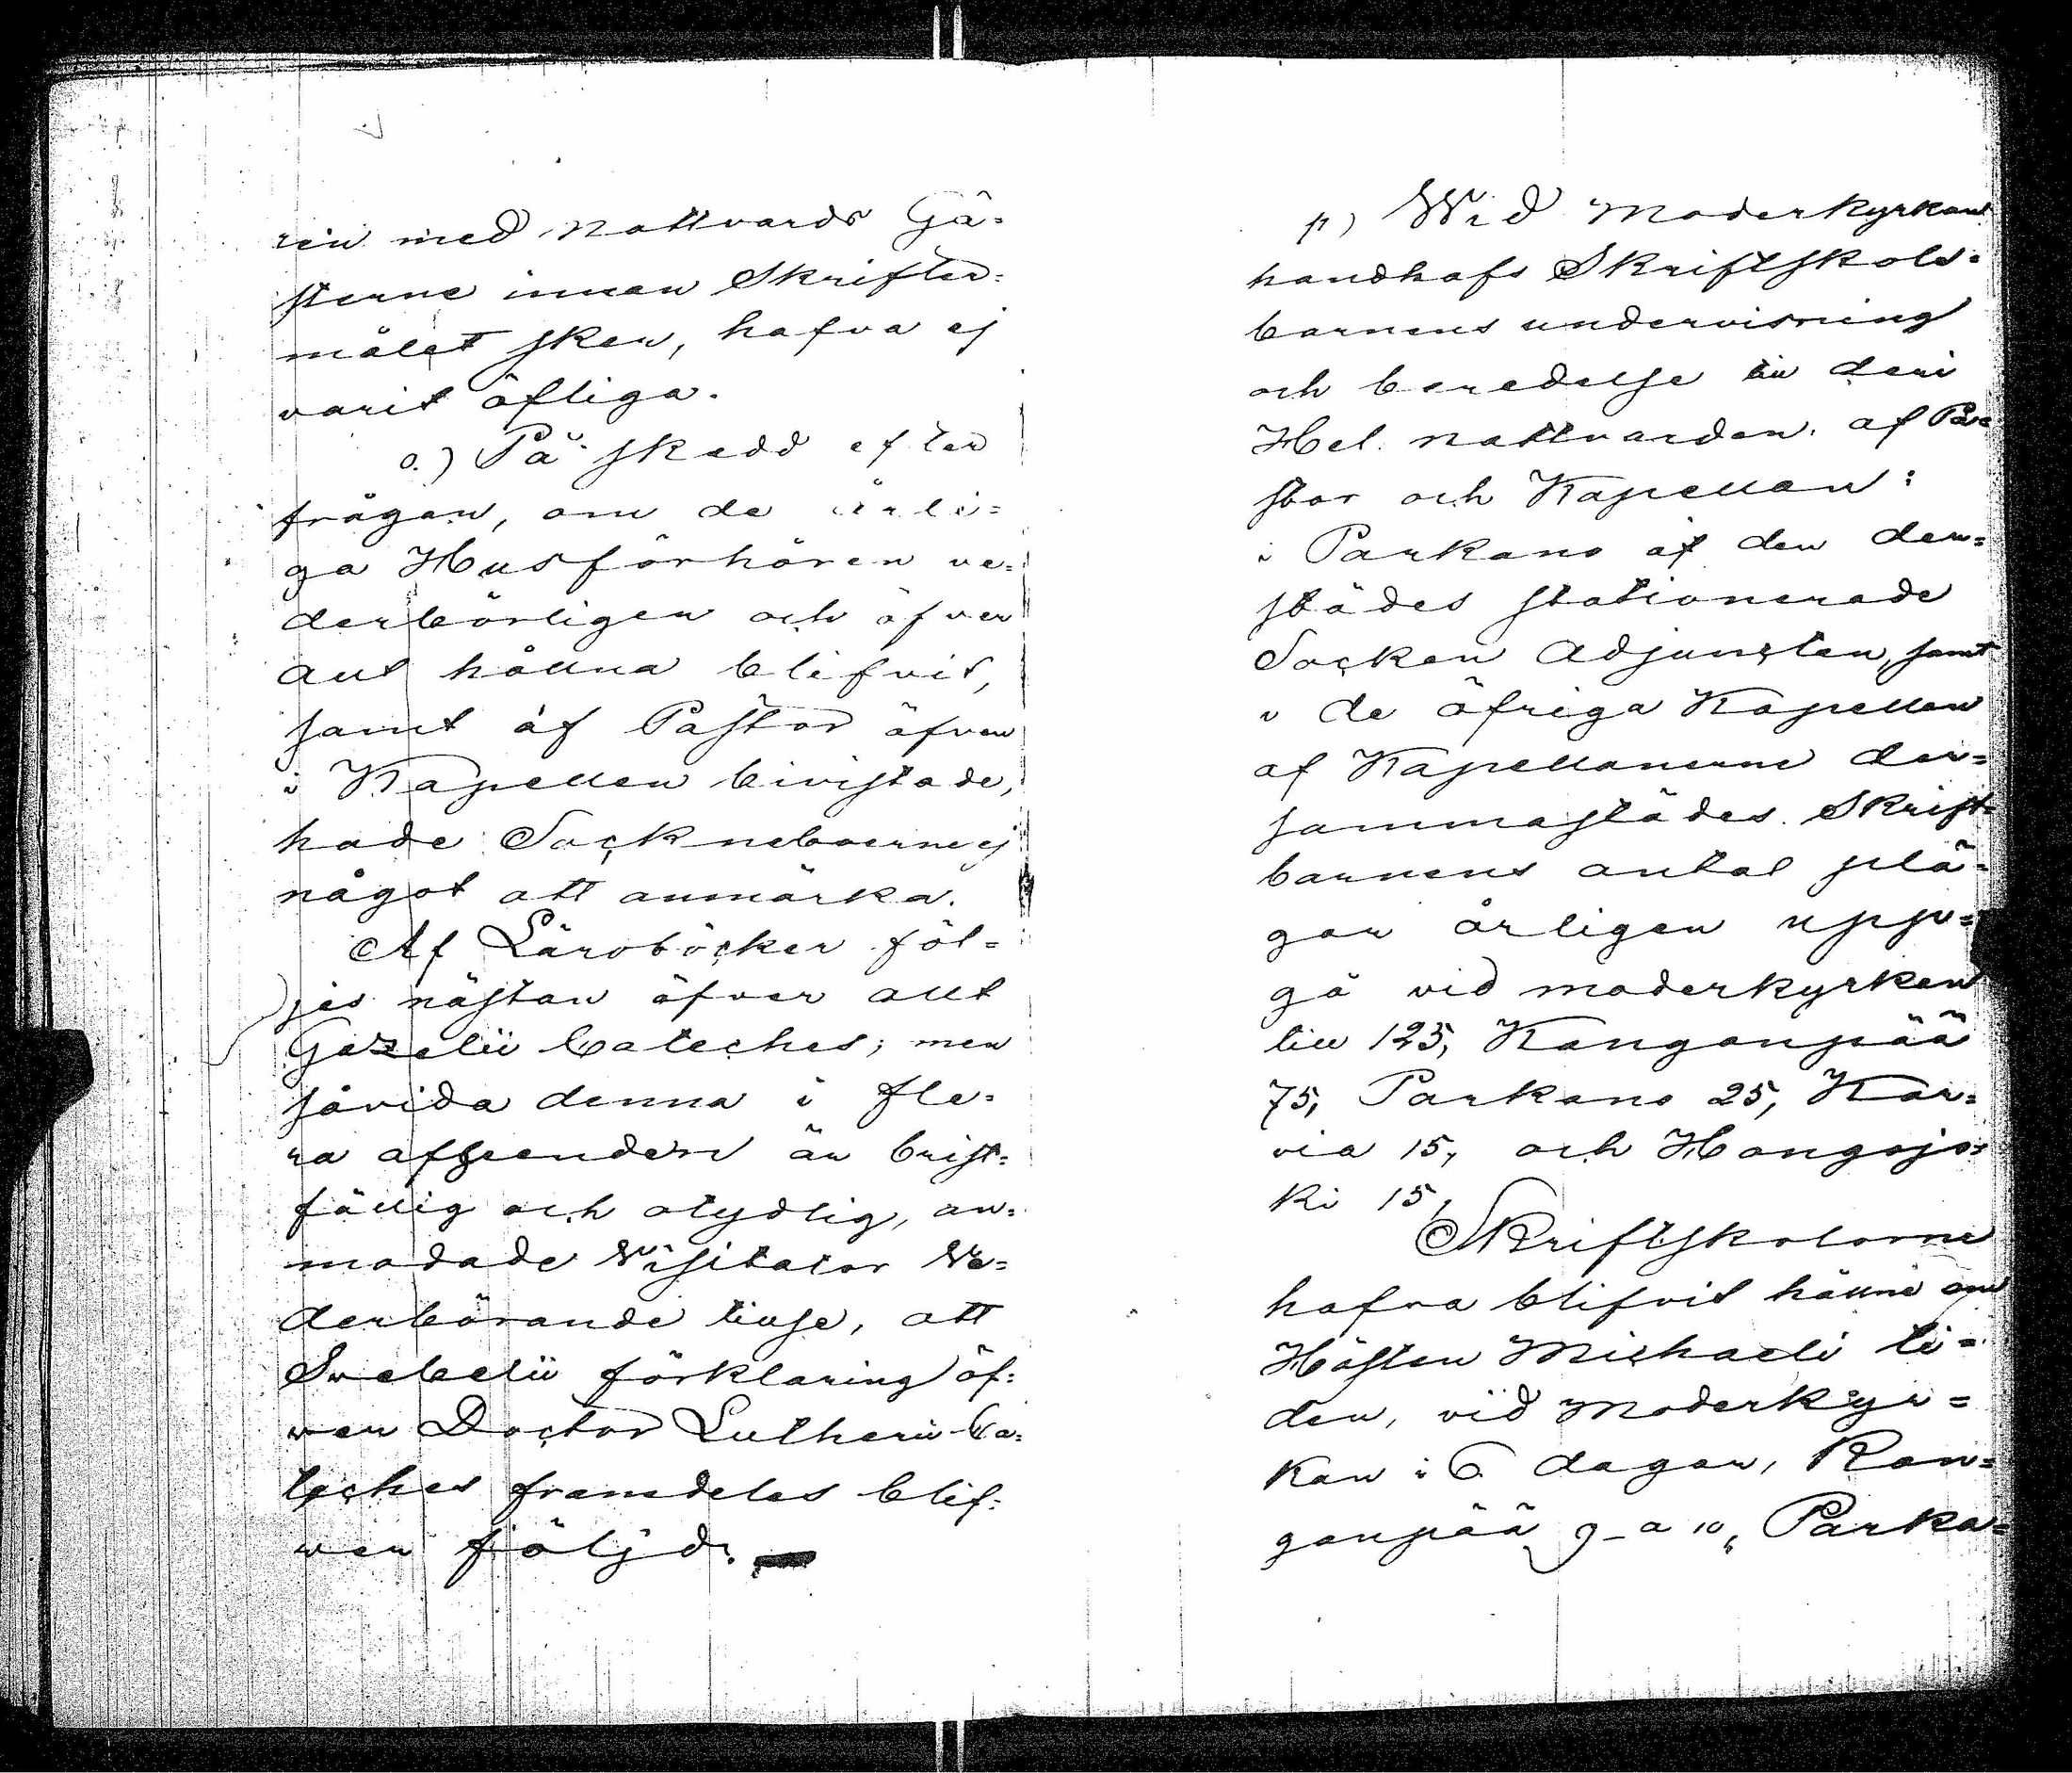 ren med Nattvards Gä=
sterne innan Skrifter=
målet sker, hafva ej
varit öfliga.
o.) På skedd efter
frågan, om de årli=
ga Husförhören ve=
derbörligen och öfver
allt hållna blifvit,
samt af Pastor äfven
i Kapellen bivistade,
hade Sockneboerne ej
något att anmärka.
Af Läroböcker föl=
jes nästan öfver allt
Gezelii Cateches; men
såvida denna i fle=
ra afseenden är brist=
fällig och otydlig, an=
modade Visitator Ve=
derbörande tillse, att
Svebelii förklaring öf=
ver Doctor Lutheri Ca=
teches framdeles blif=
ver följd.
p) Wid Moderkyrkan
handhafs Skriftskole=
barnens undervisning
och beredelse till den
Hel. Nattvarden af Pa=
stor och Kapellan:
i Parkano af den der=
städes stationerade
Socken Adjuncten, samt
i de öfriga Kapellen
af Kapellanerne der=
sammastädes. Skrift=
barnens antal plä=
gar årligen upp=
gå vid moderkyrkan
till 125, Kanganpää
75, Parkano 25, Kar=
via 15, och Hongojo=
ki 15,
Skriftskolorne
hafva blifvit hållne om
Hösten Michaeli ti=
den, vid Moderkyr=
kan i 6 dagar, Kan=
ganpää 9 a 10, Parka=